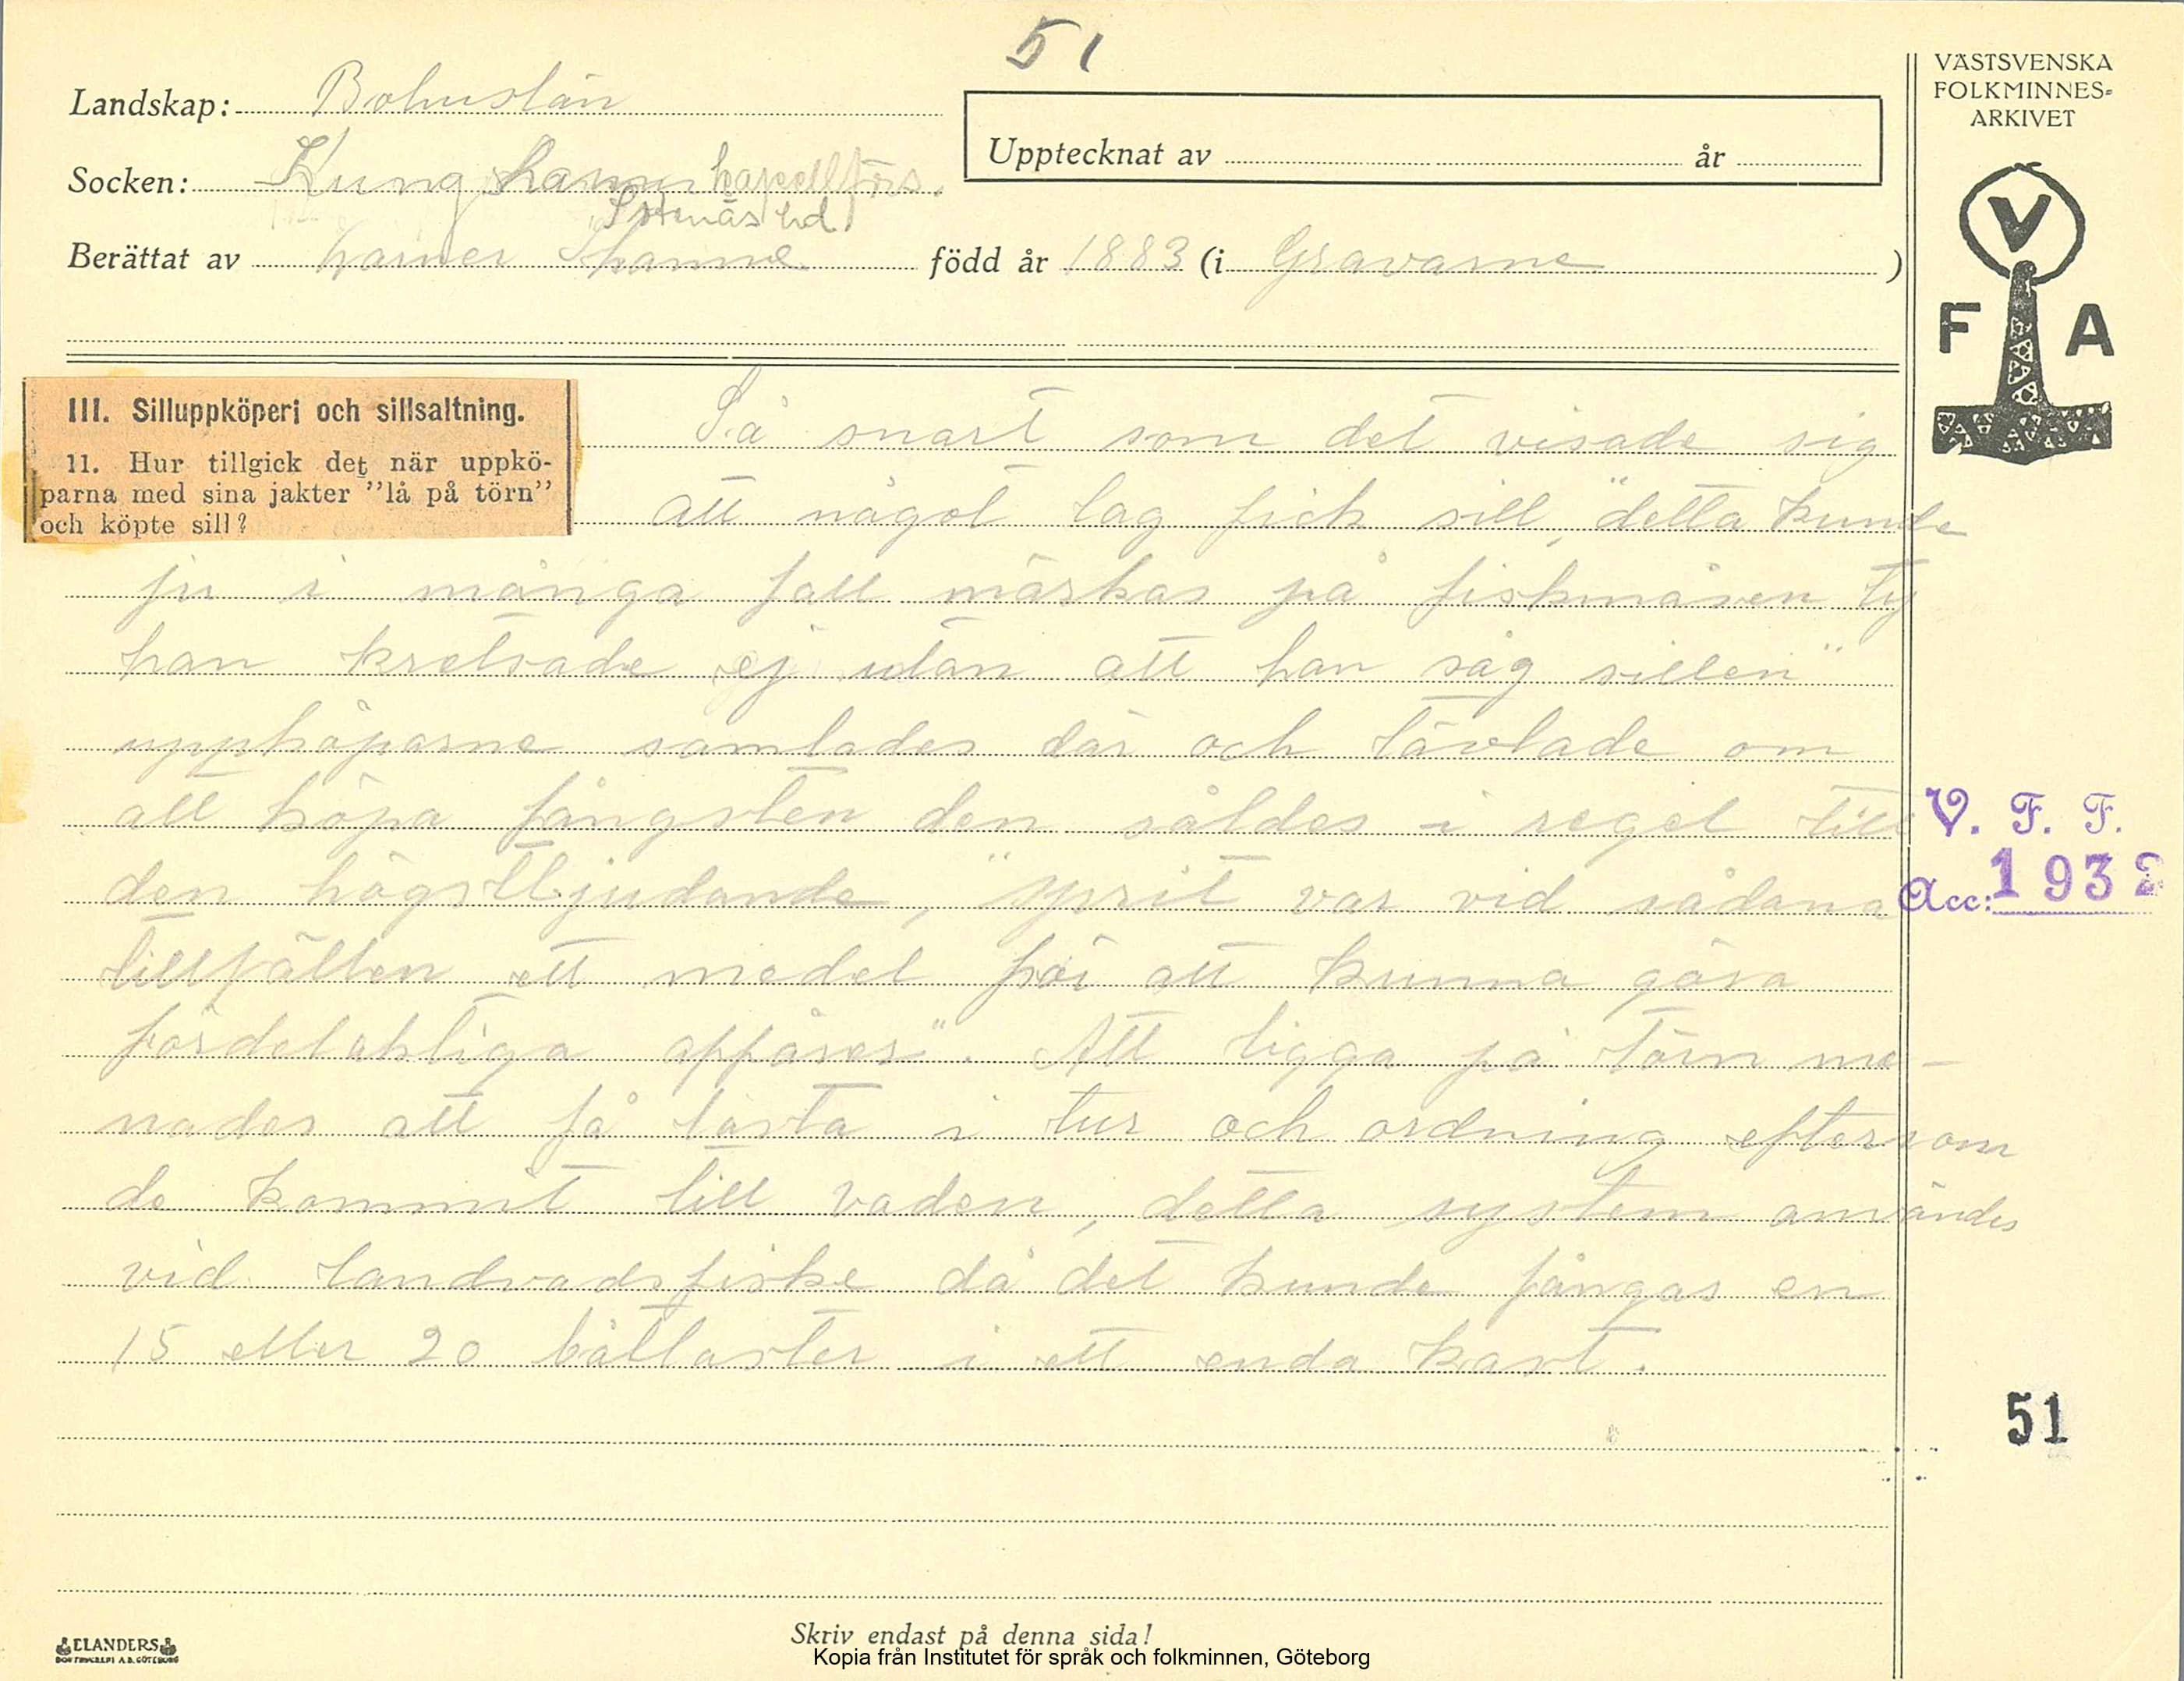 51
Landskap: Bohuslän
Upptecknat av år
Socken: Kungshamn kapellförs.
Sotenäs hd
Berättat av Harner Hanne född år 1883 (i Gravarne )
VÄSTSVENSKA
FOLKMINNES-
ARKIVET
V
F A
III. Silluppköperi och sillsaltning.
11. Hur tillgick det när uppkö-
parna med sina jakter "lå på törn"
och köpte sill?
Så snart som det visade sig
att något lag fick sill, "detta kunde
ju i många fall märkas på fiskmåsen ty
han kretsade ej utan att han såg sillen"
uppköparne samlades där och tävlade om
att köpa fångsten den såldes i regel till
den högstbjudande, "sprit var vid sådana
tillfällen ett medel för att kunna göra
fördelaktiga affärer". Att ligga på törn me-
nades att få lasta i tur och ordning eftersom
de kommit till vaden, detta system användes
vid landvadsfiske då det kunde fångas en
15 eller 20 båtlaster i ett enda kast.
V. F. F.
Acc: 1932
51
ELANDERS
BOKTRYCKERI A.B. GÖTEBORG
Skriv endast på denna sida!
Kopia från Institutet för språk och folkminnen, Göteborg